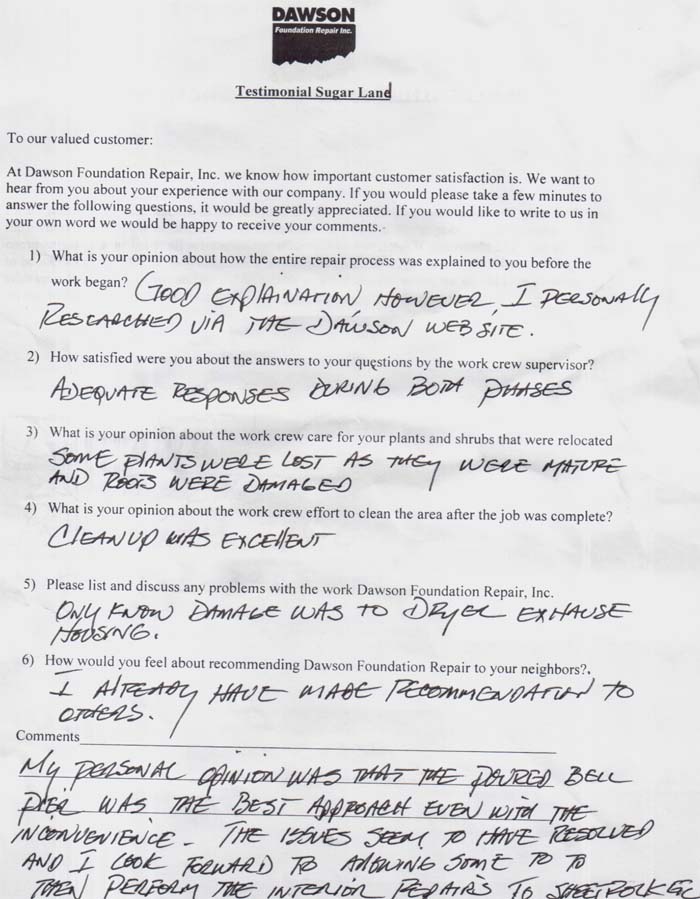 DAWSON
Foundation Repair Inc.
Testimonial Sugar Land
To our valued customer:
At Dawson Foundation Repair, Inc. we know how important customer satisfaction is. We want to
hear from you about your experience with our company. If you would please take a few minutes to
answer the following questions, it would be greatly appreciated. If you would like to write to us in
your own word we would be happy to receive your comments.
1) What is your opinion about how the entire repair process was explained to you before the
work began? GOOD EXPLAINATION, HOWEVER, I PERSONALLY
RESEARCHED VIA THE DAWSON WEB SITE.
2) How satisfied were you about the answers to your questions by the work crew supervisor?
ADEQUATE RESPONSES DURING BOTH PHASES
3) What is your opinion about the work crew care for your plants and shrubs that were relocated
SOME PLANTS WERE LOST AS THEY WERE MATURE
AND ROOTS WERE DAMAGED
4) What is your opinion about the work crew effort to clean the area after the job was complete?
CLEANUP WAS EXCELLENT
5) Please list and discuss any problems with the work Dawson Foundation Repair, Inc.
ONLY KNOW DAMAGE WAS TO DRYER EXHAUSE
HOUSING.
6) How would you feel about recommending Dawson Foundation Repair to your neighbors?.
I ALREADY HAVE MADE RECOMMENDATION TO
OTHERS.
Comments
MY PERSONAL OPINION WAS THAT THE POURED BELL
PIER WAS THE BEST APPROACH EVEN WITH THE
INCONVENIENCE - THE ISSUES SEEM TO HAVE RESOLVED
AND I LOOK FORWARD TO ALLOWING SOME TO TO
THEN PERFORM THE INTERIOR REPAIRS TO SHEETROCK